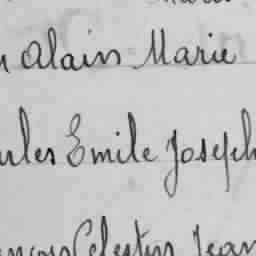 Alain Marie
ules Emile Joseph
ençois Célestin Jean